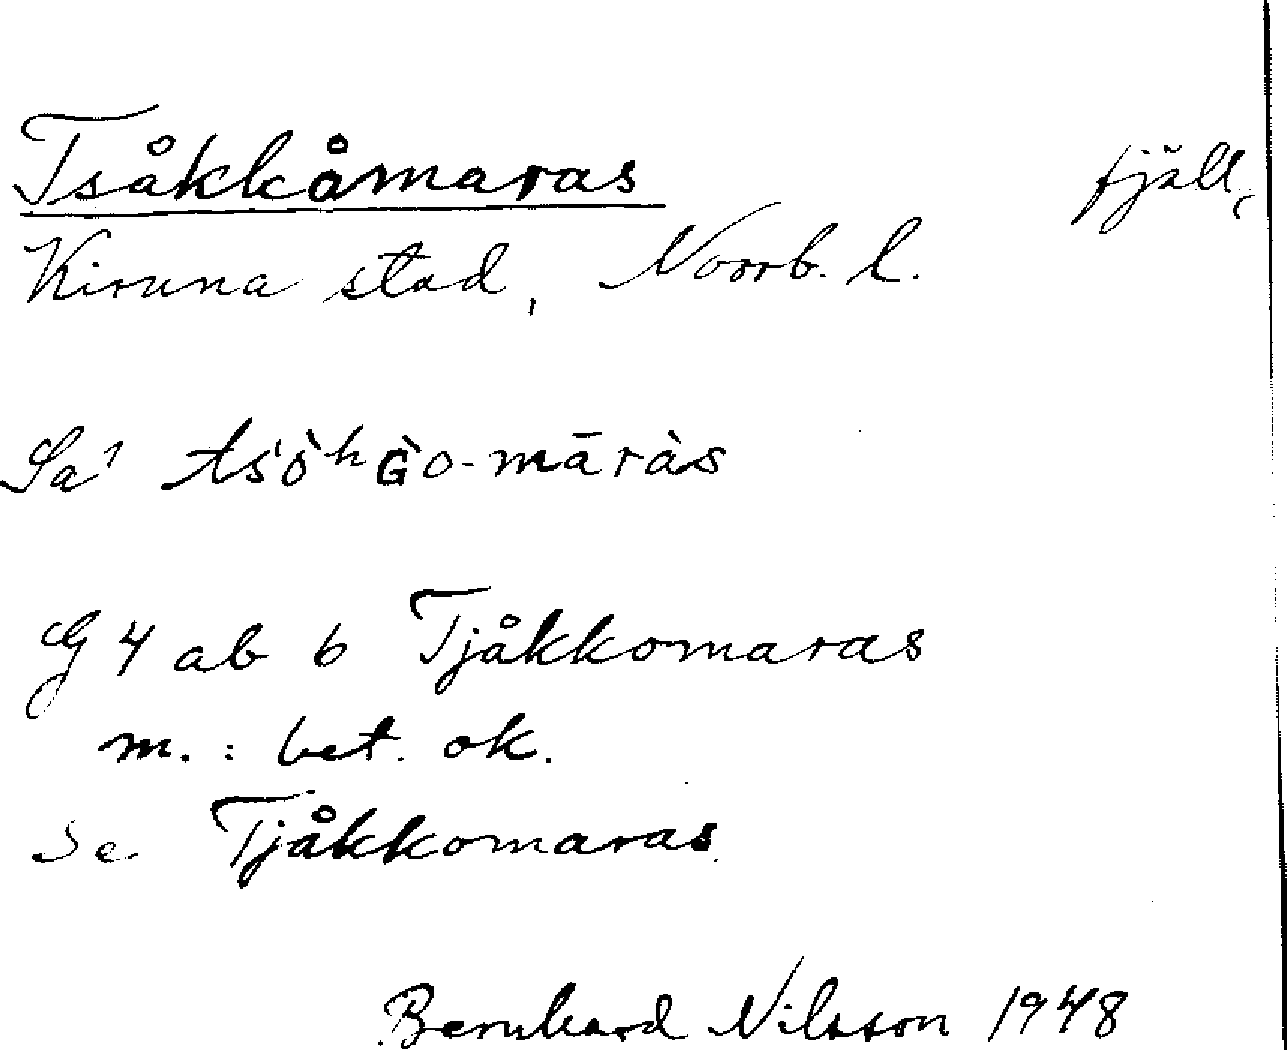 Tsåkkåmaras fjäll,
Kiruna stad, Norrb. l.
Sa¹ tsò̀ʰɢ̀o-māràs
G 4 ab 6 Tjåkkomaras
m. : bet. ok.
Se Tjåkkomaras
Bernhard Nilsson 1948